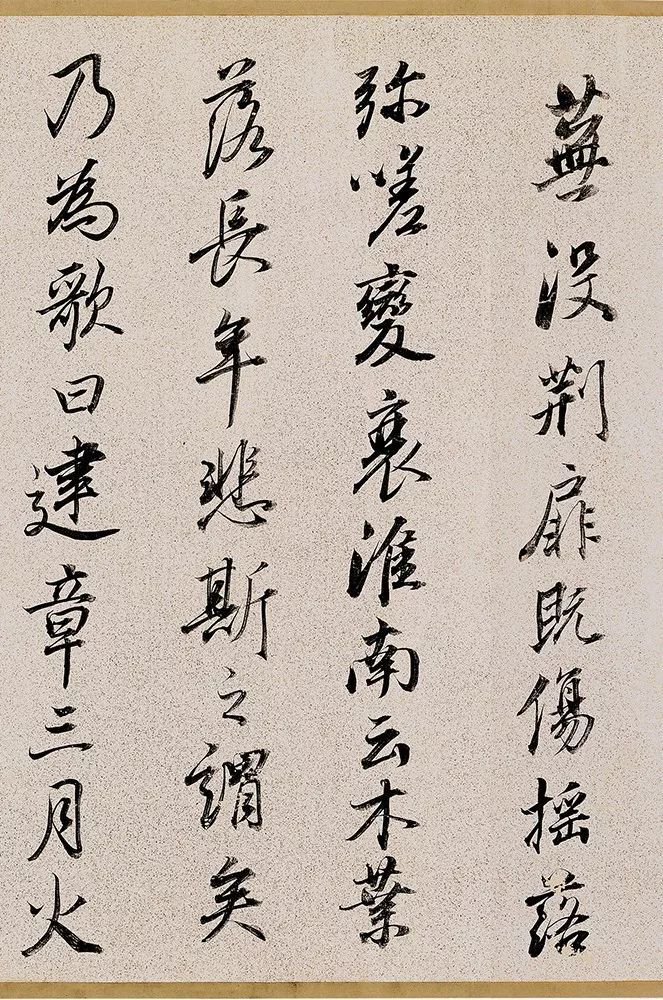 蕪没荆扉既傷揺落
弥嗟變衰淮南云木葉
落長年悲斯之謂矣
乃為歌曰建章三月火